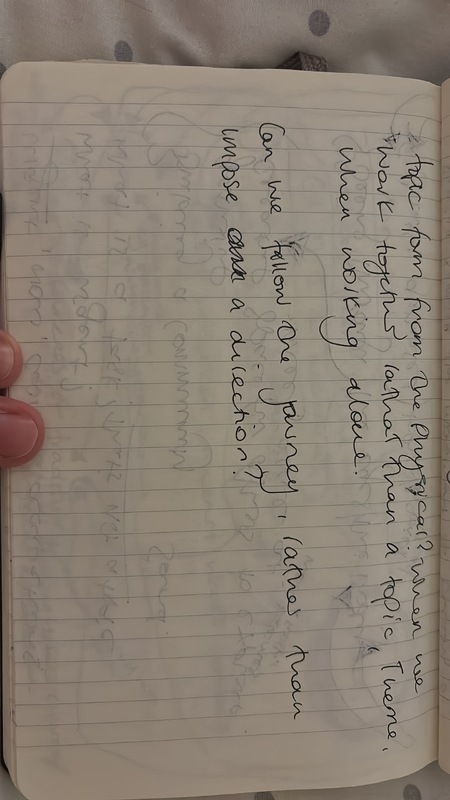 topic form from the Physical? when we
"work together rather than a topic" Theme,
when working alone.
Can we "follow the journey, rather than
impose a direction?"